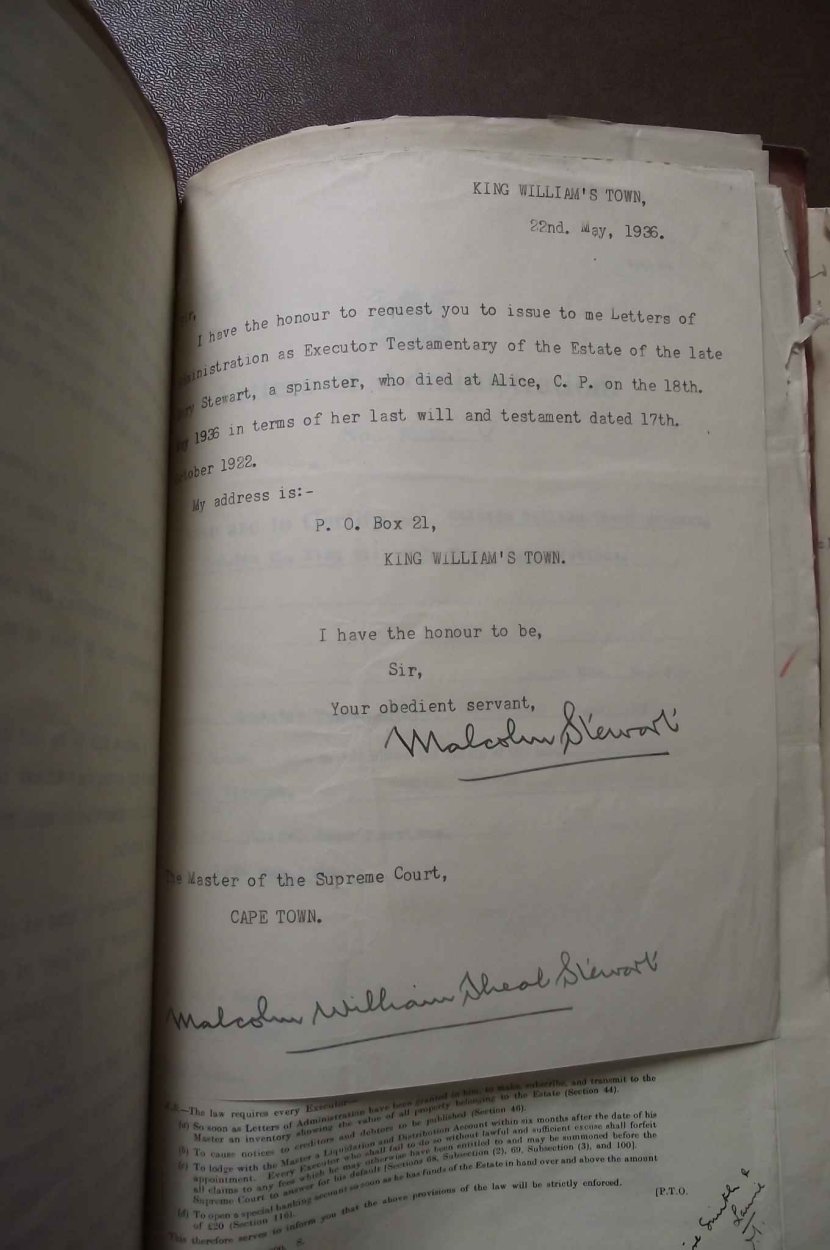 KING WILLIAM'S TOWN,
22nd. May, 1936.
I have the honour to request you to issue to me Letters of
Administration as Executor Testamentary of the Estate of the late
Stewart, a spinster, who died at Alice, C. P. on the 18th.
1936 in terms of her last will and testament dated 17th.
October 1922.
My address is:-
P. O. Box 21,
KING WILLIAM'S TOWN.
I have the honour to be,
Sir,
Your obedient servant,
Malcolm Stewart
The Master of the Supreme Court,
CAPE TOWN.
Malcolm William Sheal Stewart
N.B.—The law requires every Executor—
(a) So soon as Letters of Administration have been granted to him, to make, subscribe, and transmit to the
Master an inventory showing the value of all property belonging to the Estate (Section 44).
(b) To cause notices to creditors and debtors to be published (Section 46).
(c) To lodge with the Master a Liquidation and Distribution Account within six months after the date of his
appointment. Every Executor who shall fail to do so without lawful and sufficient excuse shall forfeit
all claims to any fees which he may otherwise have been entitled to and may be summoned before the
Supreme Court to answer for his default [Sections 68, Subsection (2), 69, Subsection (3), and 100].
(d) To open a special banking account so soon as he has funds of the Estate in hand over and above the amount
of £20 (Section 116).
This therefore serves to inform you that the above provisions of the law will be strictly enforced.
[P.T.O.
Smith &